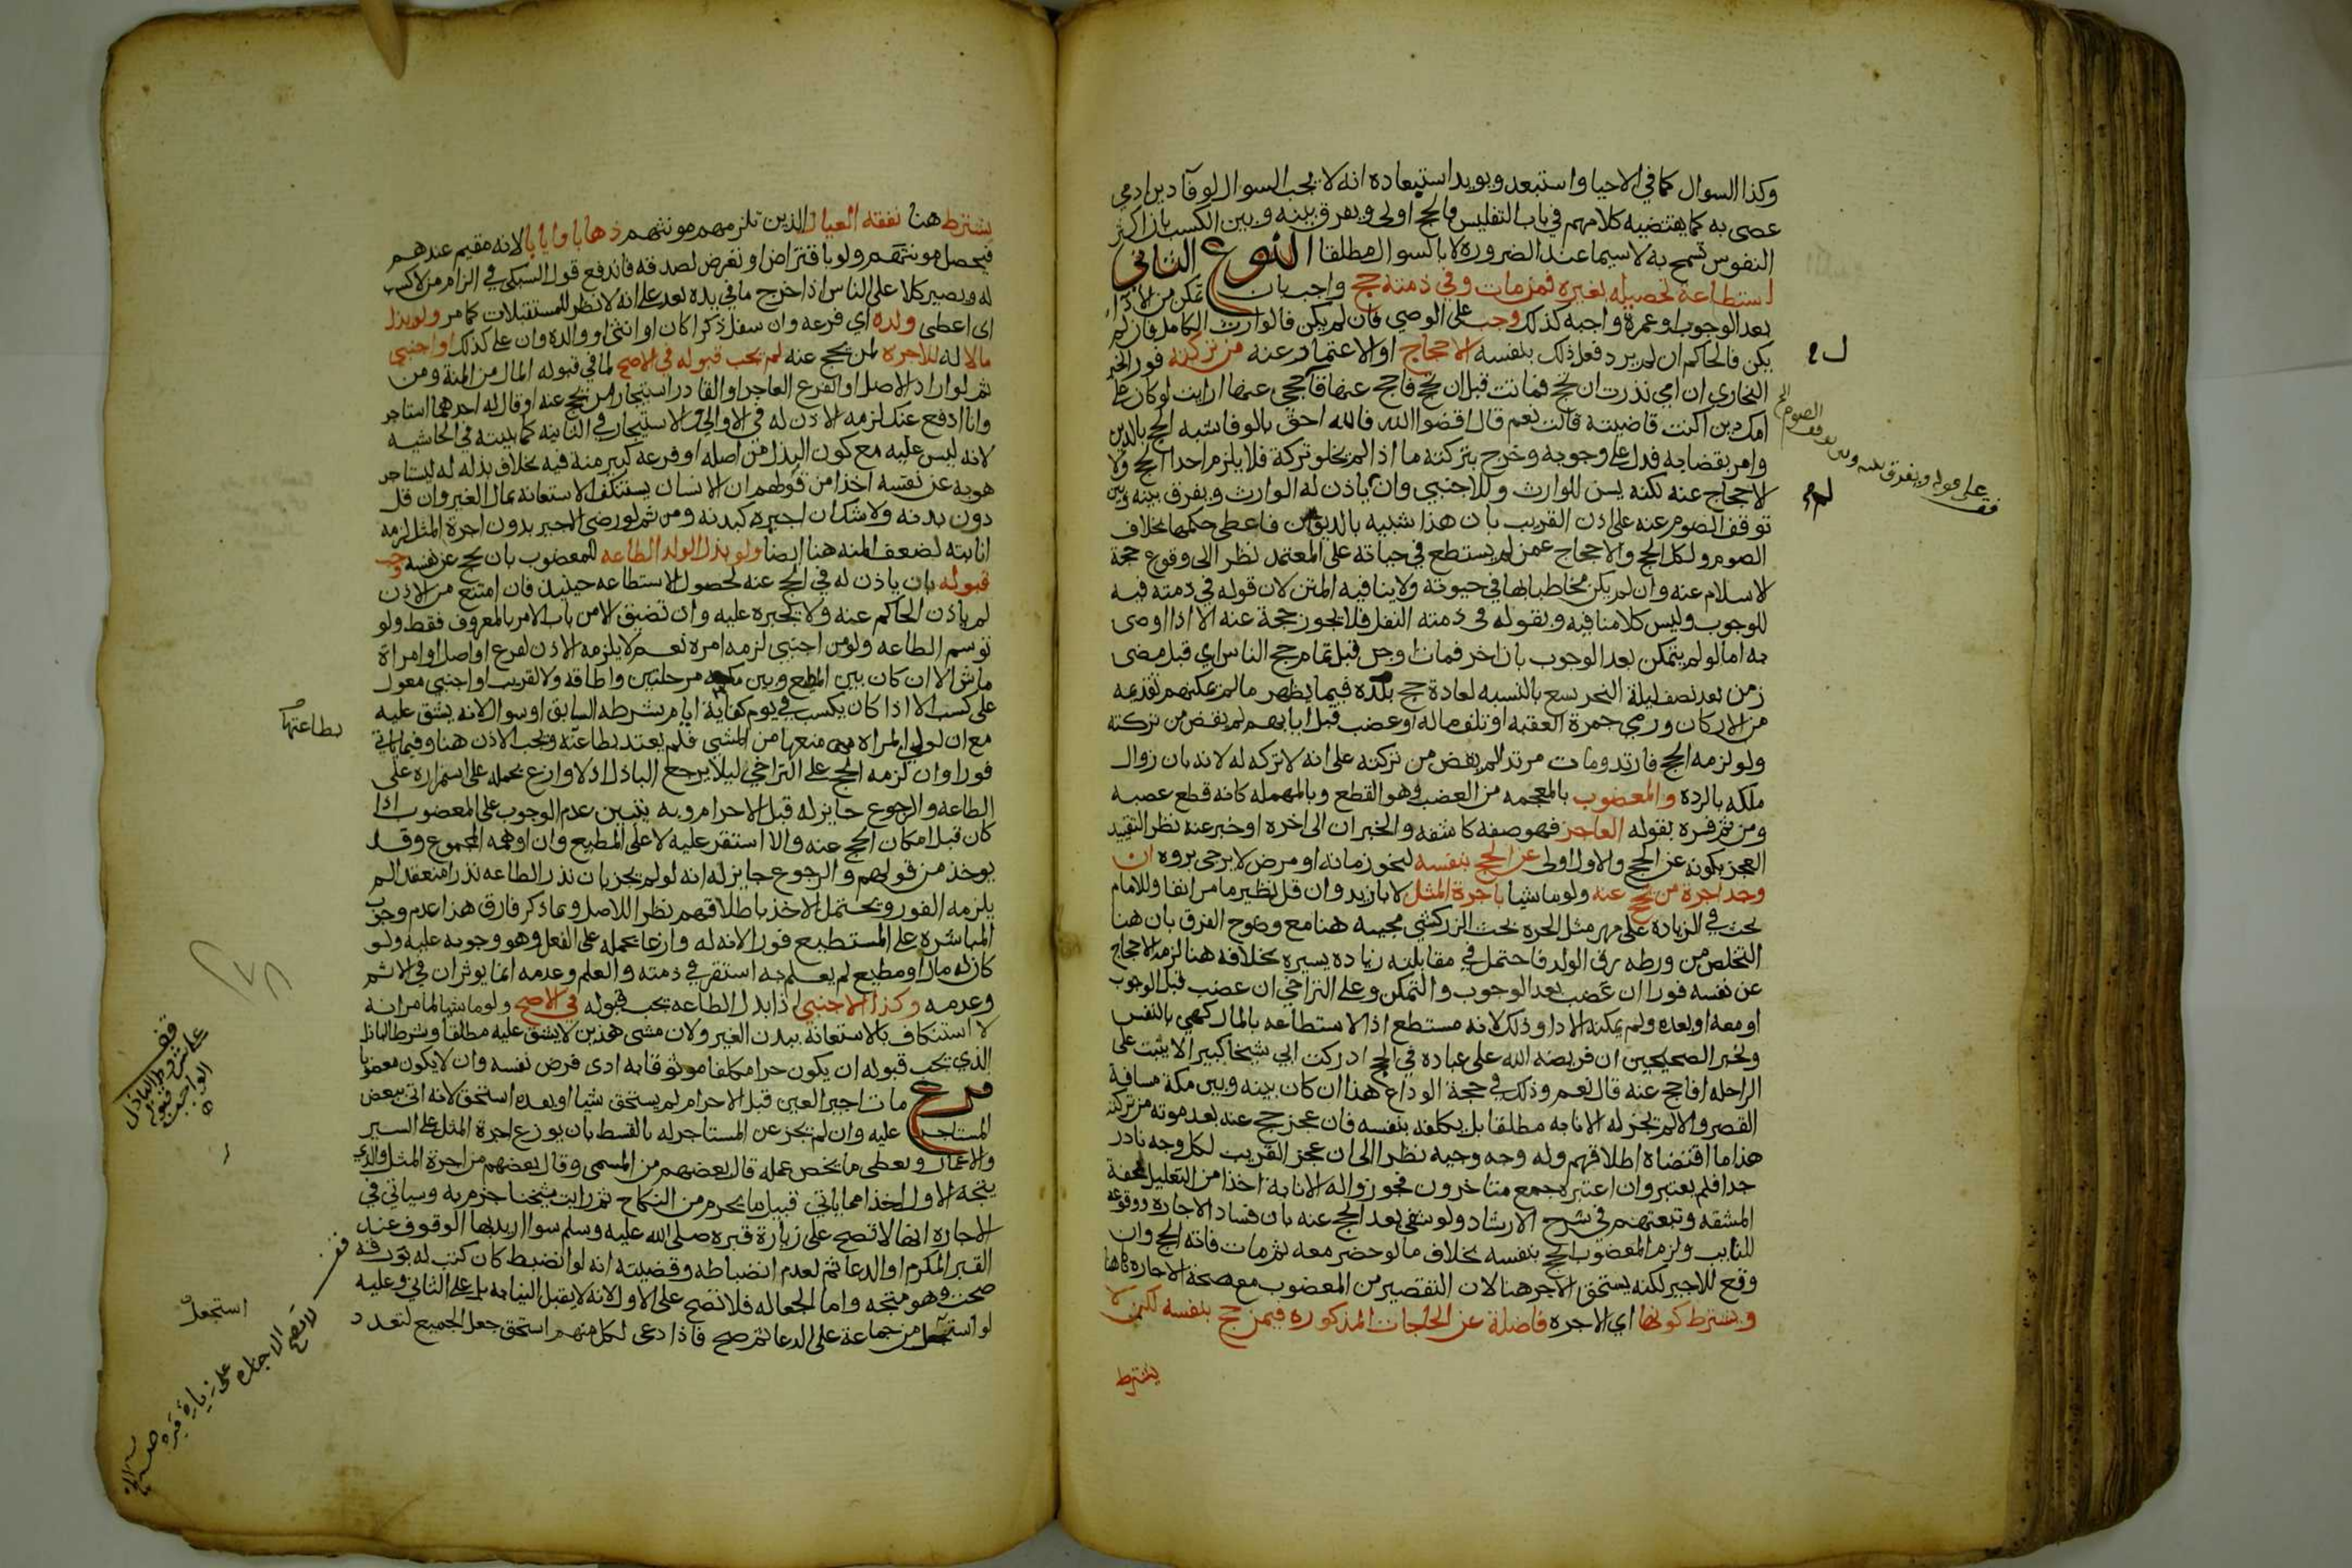 وكذا السوال كما في الاحيا واستبعد ويويد استبعاده انه لا يجب السوال لوفآ دين ادمي
عصى به كما يقتضيه كلامهم في باب التفليس فالحج اولى ويفرق بينه وبين الكسب بان اكثر
النفوس تسمح به لاسيما عند الضرورة لا بالسوال مطلقا النوع الثاني
استطاعة تحصيله بغيره فمن مات وفي ذمته حج واجب بان تمكن من الادا
بعد الوجوب او عمرة واجبه كذلك وجب على الوصي فان لم يكن فالوارث الكامل فان لم
يكن فالحاكم ان لم يرد فعل ذلك بنفسه الاحجاج او الاعتمار عنه من تركته فورا لخبر
البخاري ان امي نذرت ان تحج فماتت قبل ان تحج افاحج عنها قال حجي عنها ارايت لو كان على
امك دين اكنت قاضيته قالت نعم قال اقضوا الله فالله احق بالوفا شبه الحج بالدين
وامر بقضايه فدل على وجوبه وخرج بتركته ما اذا لم يخلف تركة فلا يلزم احدا الحج ولا
الاحجاج عنه لكنه يسن للوارث وللاجنبي وان لم ياذن له الوارث ويفرق بينه وبين
توقف الصوم عنه على اذن القريب بان هذا شبيه بالديون فاعطي حكمها بخلاف
الصوم ولكل الحج والاحجاج عمن لم يستطع في حياته على المعتمد نظرا الى وقوع حجة
الاسلام عنه وان لم يكن مخاطبا بها في حيوته ولا ينافيه المتن لان قوله في ذمته قيد
للوجوب وليس كلامنا فيه وبقوله في ذمته النفل فلا يجوز حجة عنه الا اذا اوصى
به اما لو لم يتمكن بعد الوجوب بان اخر فمات او جن قبل تمام حج الناس اي قبل مضى
زمن بعد نصف ليلة النحر يسع بالنسبه لعادة حج بلده فيما يظهر ما لم يمكنهم تقديمه
من الاركان ورمي جمرة العقبه او تلف ماله او عضب قبل ايابهم لم يقض من تركته
ولو لزمه الحج فارتد ومات مرتدا لم يقض من تركته على انه لا تركه له لانه بان زوال
ملكه بالرده والمعضوب بالمعجمه من العضب وهو القطع وبالمهمله كانه قطع عصبه
ومن ثم فسره بقوله العاجز فهو صفه كاشفه والخبر ان الى اخره او خبر عنه نظرا لتقييد
العجز بكونه عن الحج والاول اولى عن الحج بنفسه لنحو زمانه او مرض لا يرجى بروه ان
وجد اجرة من يحج عنه ولو ماشيا باجرة المثل لا بازيد وان قل نظير ما مر انفا وللامام
بحث في الزيادة على مهر مثل الحره بحث الزركشي مجيبه هنا مع وضوح الفرق بان هنا
التخلص من ورطه رق الولد فاحتمل في مقابلته زياده يسيره بخلافه هنا لزمه الاحجاج
عن نفسه فورا ان عضب بعد الوجوب والتمكن وعلى التراخي ان عضب قبل الوجوب
او معه او بعده ولم يمكنه الادا وذلك لانه مستطيع اذ الاستطاعه بالمال كهي بالنفس
ولخبر الصحيحين ان فريضه الله على عباده في الحج ادركت ابي شيخا كبيرا لا يثبت على
الراحله افاحج عنه قال نعم وذلك في حجة الوداع هذا ان كان بينه وبين مكة مسافة
القصر والا لم تجز له الانابه مطلقا بل يكلفه بنفسه فان عجز حج عنه بعد موته من تركته
هذا ما اقتضاه اطلاقهم وله وجه وجيه نظرا الى ان عجز القريب لكل وجه نادر
جدا فلم يعتبر وان اعتبره جمع متاخرون فجوزوا له الانابة اخذا من التعليل بخفة
المشقه وتبعتهم في شرح الارشاد ولو شفى بعد الحج عنه بان فساد الاجاره ووقوعه
للنايب ولزم المعضوب الحج بنفسه بخلاف ما لو حضر معه ثم مات فاته الحج وان
وقع للاجير لكنه يستحق الاجر هنا لان التقصير من المعضوب مع صحة الاجاره ظاهرا
ويشترط كونها اي الاجره فاضلة عن الحاجات المذكوره فيمن حج بنفسه لكن لا
يشترط
قف على قوله ويفرق بينه وبين توقف الصوم الخ
يشترط هنا نفقه العيال الذين تلزمهم مونتهم ذهابا وايابا لانه مقيم عندهم
فيحصل مونتهم ولو باقتراض او تعرض لصدقه فاندفع قول السبكي في الزام من لا كسب
له ويصير كلا على الناس اذا اخرج ما في يده بعد على انه لا نظر للمستقبلات كما مر ولو بذل
اي اعطى ولده اي فرعه وان سفل ذكرا كان او انثى او والده وان علي كذلك او اجنبي
مالا له للاجره لمن يحج عنه لم يجب قبوله في الاصح لما في قبوله المال من المنة ومن
ثم لو اراد الاصل او الفرع العاجز او القادر استيجار من يحج عنه او قال له احدهما استاجر
وانا ادفع عنك لزمه الاذن له في الاولى والاستيجار في الثانيه كما بينته في الحاشيه
لانه ليس عليه مع كون البذل من اصله او فرعه كبير منة فيه بخلاف بذله له ليستاجر
هو به عن نفسه اخذا من قولهم ان الانسان يستنكف الاستعانه بمال الغير وان قل
دون بدنه ولا شك ان اجيره كبدنه ومن ثم لو رضي الاجير بدون اجرة المثل لزمه
انابته لضعف المنه هنا ايضا ولو بذل الولد الطاعه للمعضوب بان يحج عن نفسه وجب
قبوله بان ياذن له في الحج عنه لحصول الاستطاعه حينيذ فان امتنع من الاذن
لم ياذن الحاكم عنه ولا يجبره عليه وان تضيق الا من باب الامر بالمعروف فقط ولو
توسم الطاعه ولو من اجنبي لزمه امره نعم لا يلزمه الاذن لفرع او اصل او امراة
ماش الا ان كان بين المطيع وبين مكه مرحلتين واطاقه ولا لقريب او اجنبي معول
على كسب الا اذا كان يكسب في يوم كفاية ايام بشرطه السابق او سوال لانه يشق عليه
مع ان لولي المراه منعها من المشي فلم يعتد بطاعته ويجب الاذن هنا وفيما ياتي
فورا وان لزمه الحج على التراخي ليلا يرجع الباذل اذ لا وازع يحمله على استمراره على
الطاعه والرجوع جايز له قبل الاحرام وبه يتبين عدم الوجوب على المعضوب اذا
كان قبل امكان الحج عنه والا استقر عليه لا على المطيع وان اوهمه المجموع وقد
يوخذ من قولهم والرجوع جايز له انه لو لم يجز بان نذر الطاعه نذرا منعقدا لم
يلزمه الفور ويحتمل الاخذ باطلاقهم نظرا للاصل وما ذكر فارق هذا عدم وجوب
المباشره على المستطيع فورا لانه له وازعا يحمله على الفعل وهو وجوبه عليه ولو
كان له مال او مطيع لم يعلم به استقر في ذمته والعلم وعدمه انما يوثران في الاثم
وعدمه وكذا الاجنبي اذا بذل الطاعه يجب قبوله في الاصح ولو ماشيا لما مر انه
لا استنكاف بالاستعانة ببدن الغير ولان مشى هذين لا يشق عليه مطلقا وشرط الباذل
الذي يجب قبوله ان يكون حرا مكلفا موثوقا به ادى فرض نفسه وان لا يكون معضوبا
فرع مات اجير العين قبل الاحرام لم يستحق شيا او بعده استحق لانه اتى ببعض
المستاجر عليه وان لم يجز عن المستاجر له بالقسط بان يوزع اجرة المثل على السير
والاعمال ويعطى ما يخص عمله قال بعضهم من المسمى وقال بعضهم من اجرة المثل والذي
يتجه الاول اخذا مما ياتي قبيل ما يحرم من النكاح ثم رايت شيخنا جزم به وسياتي في
الاجاره انها لا تصح على زيارة قبره صلى الله عليه وسلم سوا اريد بها الوقوف عند
القبر المكرم او الدعا ثم لعدم انضباطه وقضيته انه لو انضبط كان كتب له بورقه
صحت وهو متجه واما الجعاله فلا تصح على الاول لانه لا يقبل النيابه بل على الثاني وعليه
لو استجعل من جماعة على الدعا ثم صح فاذا دعى لكل منهم استحق جعل الجميع لتعدد
بطاعتها
قف على شروط الباذل الواجب قبوله
استجعل
قف لا تصح الاجاره على زيارة قبره